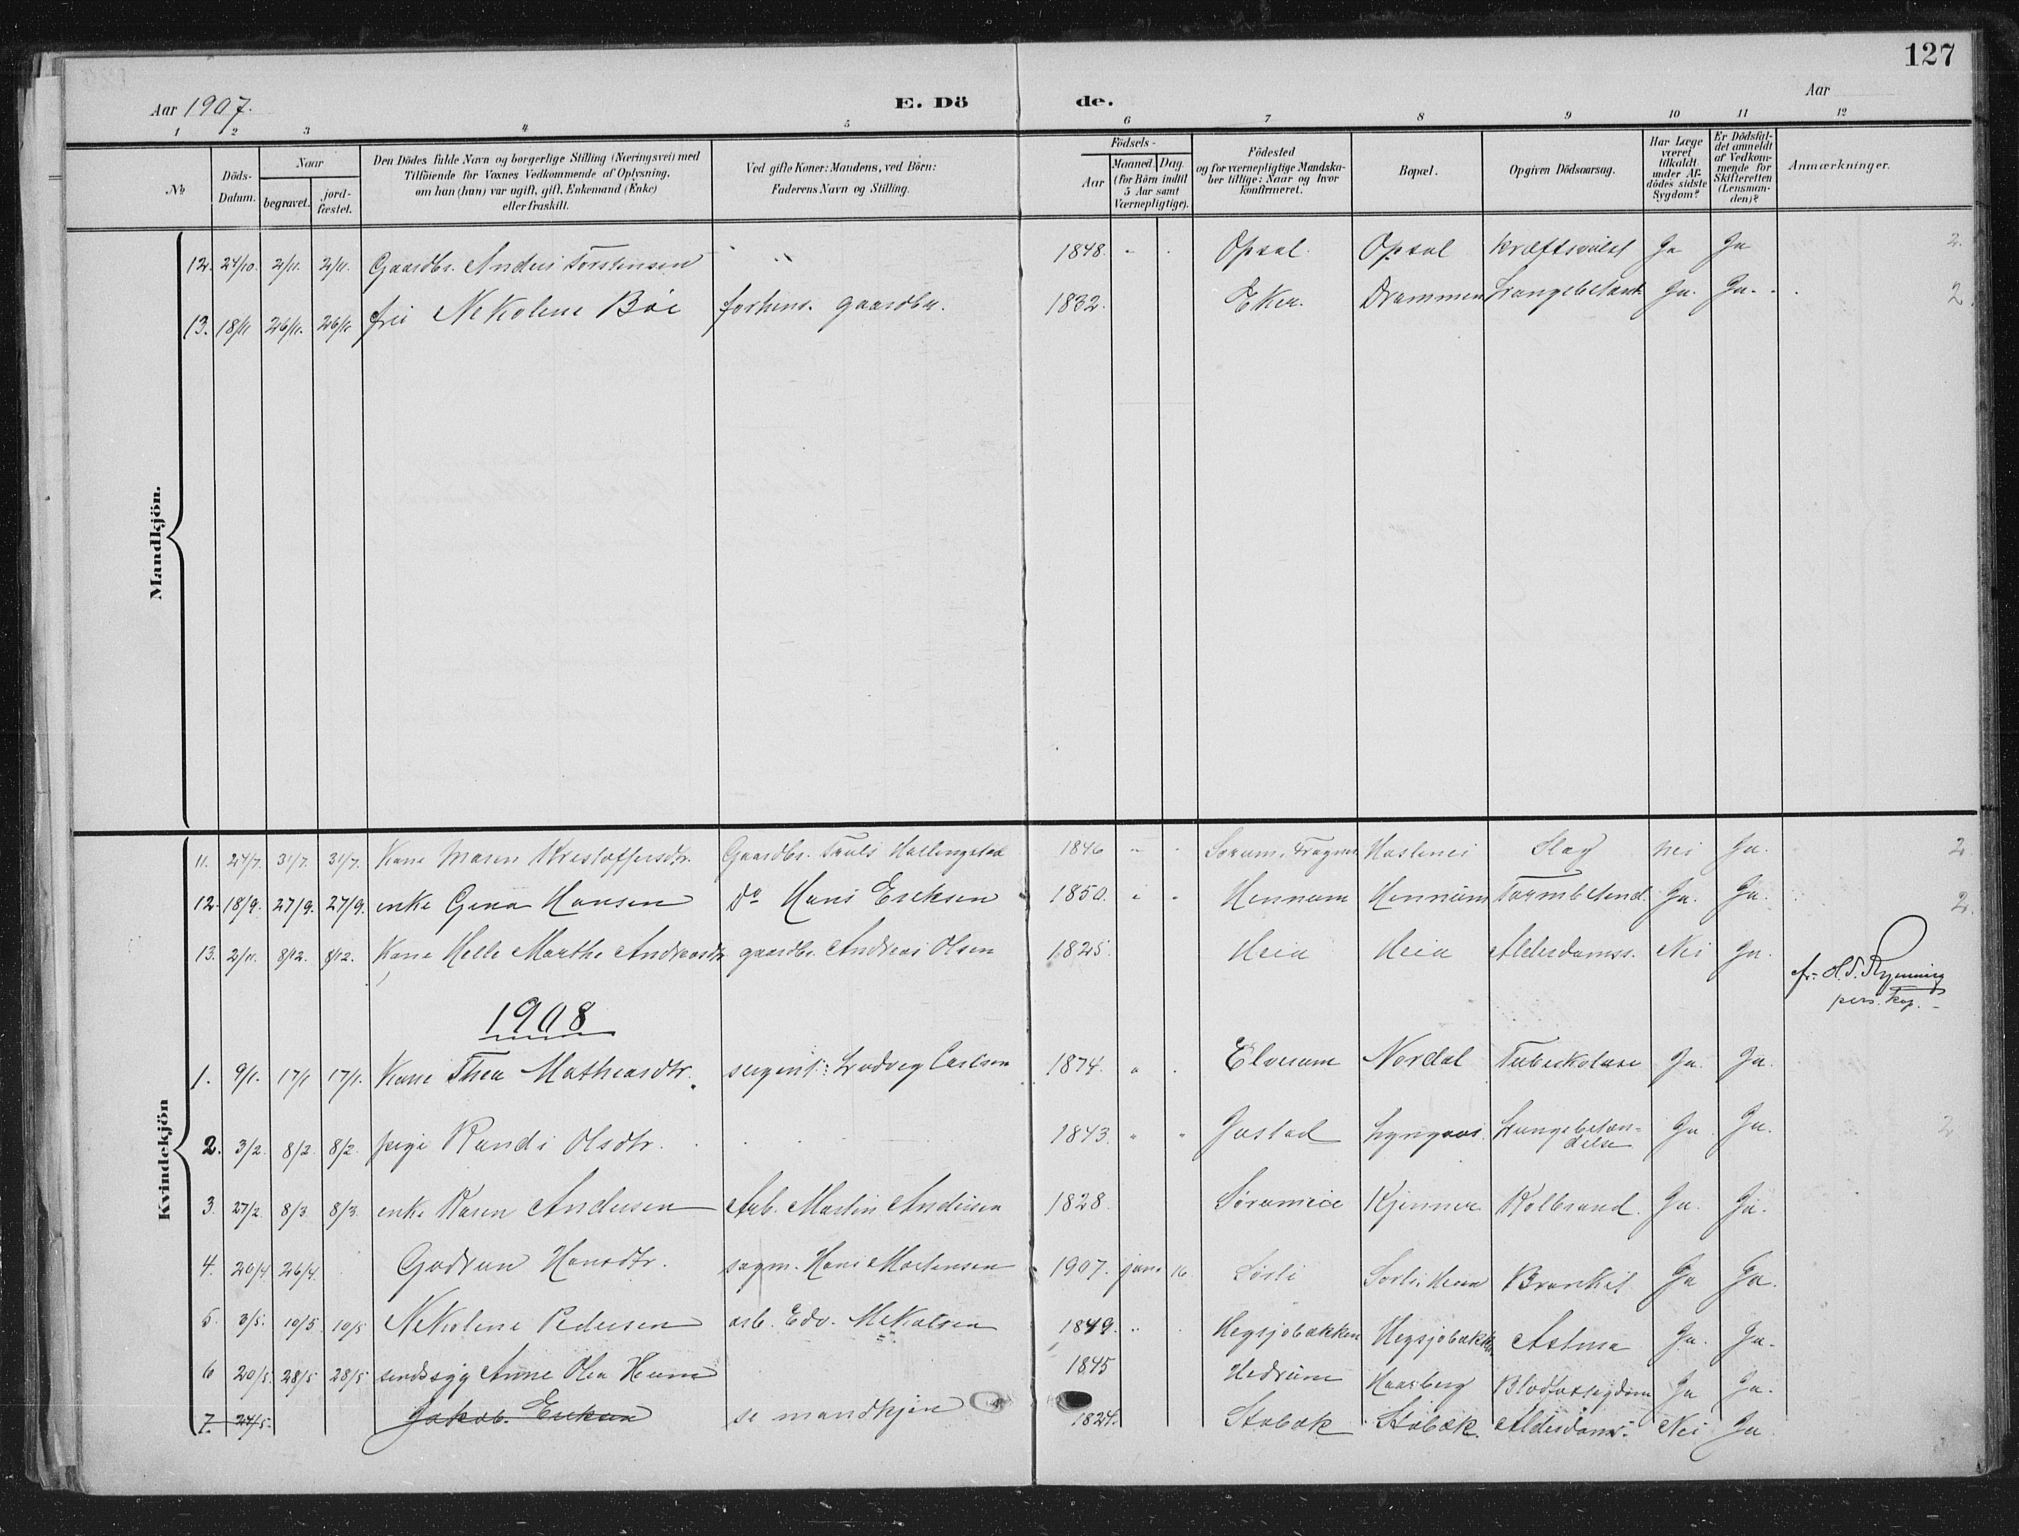 127
Aar 1907.
E. Dö
de.
Aar
1 2 3 4 5 6 7 8 9 10 11 12
No
Döds-Datum.
Naar
begravet.
jord-fæstet.
Den Dödes fulde Navn og borgerlige Stilling (Næringsvei) med
Tilföiende for Voxnes Vedkommende af Oplysning,
om han (hun) var ugift, gift, Enkemand (Enke)
eller fraskilt.
Ved gifte Koner: Mandens, ved Börn:
Faderens Navn og Stilling.
Födsels-
Aar
Maaned. Dag.
(for Börn indtil
5 Aar samt
Værnepligtige).
Födested
og for værnepligtige Mandska-
ber tillige: Naar og hvor
konfirmeret.
Bopæl.
Opgiven Dödsaarsag.
Har Læge
været
tilkaldt
under Af-
dödes sidste
Sygdom?
Er Dödsfal-
det anmeldt
af Vedkom-
mende for
Skifteretten
(Lensman-
den)?
Anmærkninger.
Mandkjön.
12. 24/10. 2/11. 2/11. Gaardbr. Anders Torstensen " 1848. Opsal. Opsal Kræftsvulst Ja Ja 2.
13. 18/11 26/11. 26/11. Nekoline Böe forhens. gaardbr. 1832. Eker. Drammen Ja. Ja. 2.
Kvindekjön
11. 24/7. 31/7. 31/7. Kone Maren Kristoffersdtr. Gaardbr. 1846 Slag Nei Ja. 2.
12. 18/9. 27/9. 27/9. enke Gina Hansen Do Hans Ericksen 1850. Hennum Hennum Tarmbetend. Ja. Ja. 2.
13. 2/11. 8/12. 8/12. Kone Helle Marthe Andreasdtr. gaardbr. Andreas Olsen 1825. Heia Heia Alderdomss. Nei Ja.
pers. Kap.
1908
1. 9/1. 17/1 17/1. Kone Thea Matheasdtr. sergent: Ludvig Carlsen 1874. Elverum Nordal Tuberkolose Ja. Ja.
2. 3/2. 8/2. 8/2. pige Randi Olsdtr. 1843. Gastad Lyngaas Lungebetæn-
delse Ja Ja. 2
3. 27/2. 8/3. 8/3. enke Karen Andersen Arb. Martin Andersen 1828. Kjenner Kolbrand. Ja. Ja.
4. 20/4. 26/4. Gudrun Hansdtr. sagm. Hans Mortensen 1907. 16 Sörli Bronkit. Ja Ja.
5. 3/5. 10/5. 10/5 Nekoline Pedersen arb. Edv. Mekalsen 1849. Hegsjobakken Hegsjobakken Astma Ja. Ja.
6 20/5. 28/5 28/5 sindssyg Anne Olea 1845 Hedrum Haarberg Ja Ja.
7. 24/5. Jakob. Ericksen se mandkjön 1824. Stabæk Stabæk. Alderdoms. Nei Ja